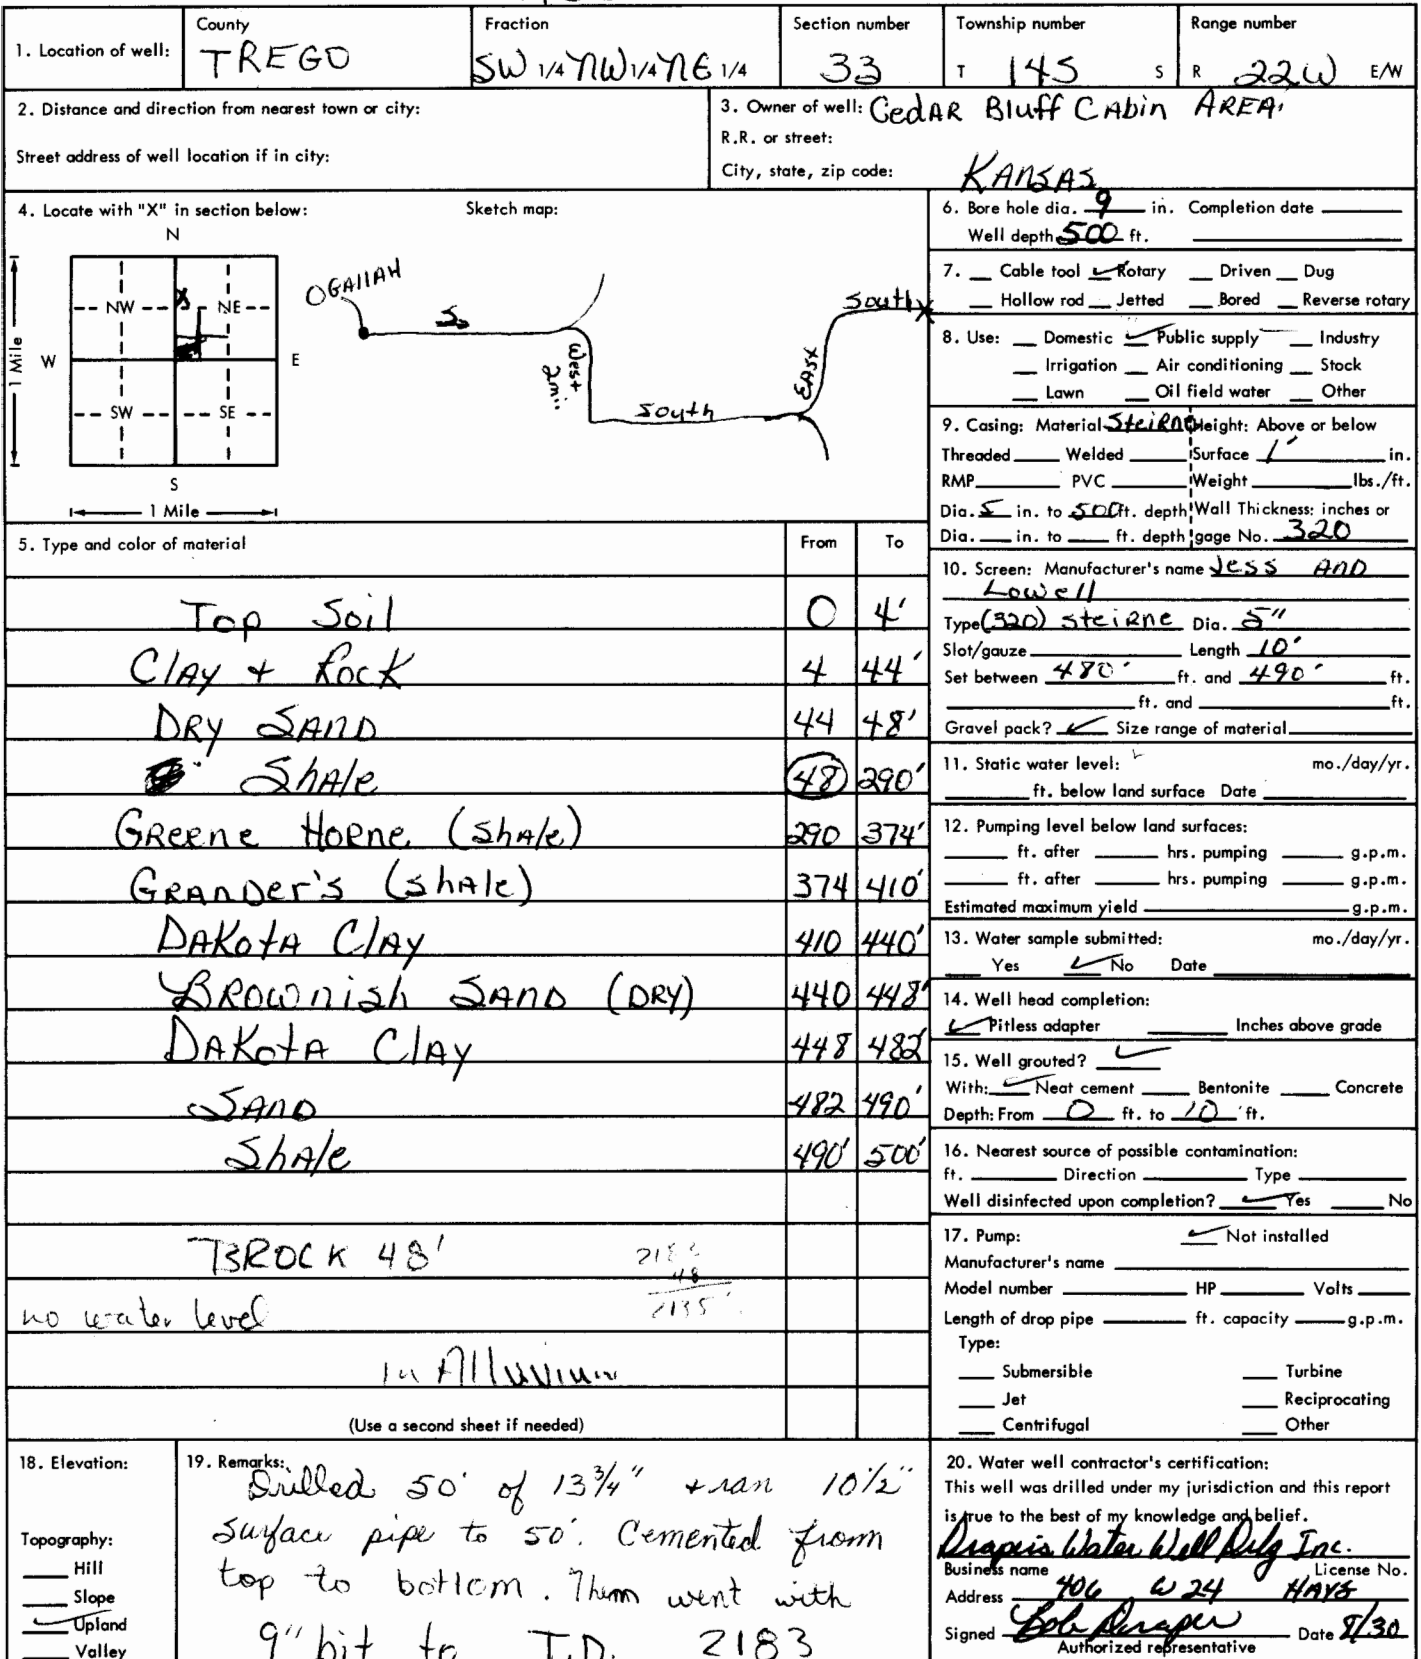 County
Fraction
Section number
Township number
Range number
1. Location of well:
TREGO
SW 1/4 NW 1/4 NE 1/4
33
T 14S S
R 22W E/W
2. Distance and direction from nearest town or city:
Street address of well location if in city:
3. Owner of well: Cedar Bluff Cabin AREA
R.R. or street:
City, state, zip code: KANSAS
4. Locate with "X" in section below:
Sketch map:
N
NW
X
NE
W
E
SW
SE
S
1 Mile
1 Mile
OGAllAH
S
West
2mi.
South
EAST
South X
6. Bore hole dia. 9 in. Completion date
Well depth 500 ft.
7. Cable tool ✓ Rotary Driven Dug
Hollow rod Jetted Bored Reverse rotary
8. Use: Domestic ✓ Public supply Industry
Irrigation Air conditioning Stock
Lawn Oil field water Other
9. Casing: Material SteiRne Height: Above or below
Threaded Welded Surface 1' in.
RMP PVC Weight lbs./ft.
Dia. 5 in. to 500 ft. depth Wall Thickness: inches or
Dia. in. to ft. depth gage No. 320
10. Screen: Manufacturer's name Jess AND
Lowell
Type (320) steiRne Dia. 5"
Slot/gauze Length 10'
Set between 480' ft. and 490' ft.
ft. and ft.
Gravel pack? ✓ Size range of material
11. Static water level: mo./day/yr.
ft. below land surface Date
12. Pumping level below land surfaces:
ft. after hrs. pumping g.p.m.
ft. after hrs. pumping g.p.m.
Estimated maximum yield g.p.m.
13. Water sample submitted: mo./day/yr.
Yes ✓ No Date
14. Well head completion:
✓ Pitless adapter Inches above grade
15. Well grouted? ✓
With: ✓ Neat cement Bentonite Concrete
Depth: From 0 ft. to 10' ft.
16. Nearest source of possible contamination:
ft. Direction Type
Well disinfected upon completion? ✓ Yes No
17. Pump: ✓ Not installed
Manufacturer's name
Model number HP Volts
Length of drop pipe ft. capacity g.p.m.
Type:
Submersible Turbine
Jet Reciprocating
Centrifugal Other
5. Type and color of material From To
Top Soil 0 4'
Clay + Rock 4 44'
DRY SAND 44 48'
ShAle 48 290'
GReene HoRne (ShAle) 290 374'
GRANDer's (ShAle) 374 410'
DAKotA ClAy 410 440'
BROWNish SAND (DRY) 440 448'
DAKotA ClAy 448 482'
SAND 482 490'
ShAle 490' 500'
BROCK 48'
2183
48
2135'
no water level
in Alluvium
(Use a second sheet if needed)
18. Elevation:
Topography:
Hill
Slope
✓ Upland
Valley
19. Remarks:
Drilled 50' of 13 3/4" + ran 10 1/2"
surface pipe to 50'. Cemented from
top to bottom. Them went with
9" bit to T.D. 2183
20. Water well contractor's certification:
This well was drilled under my jurisdiction and this report
is true to the best of my knowledge and belief.
Draper's Water Well Drlg Inc.
Business name License No.
Address 406 W 24 HAYS
Signed Bob Draper Date 8/30
Authorized representative